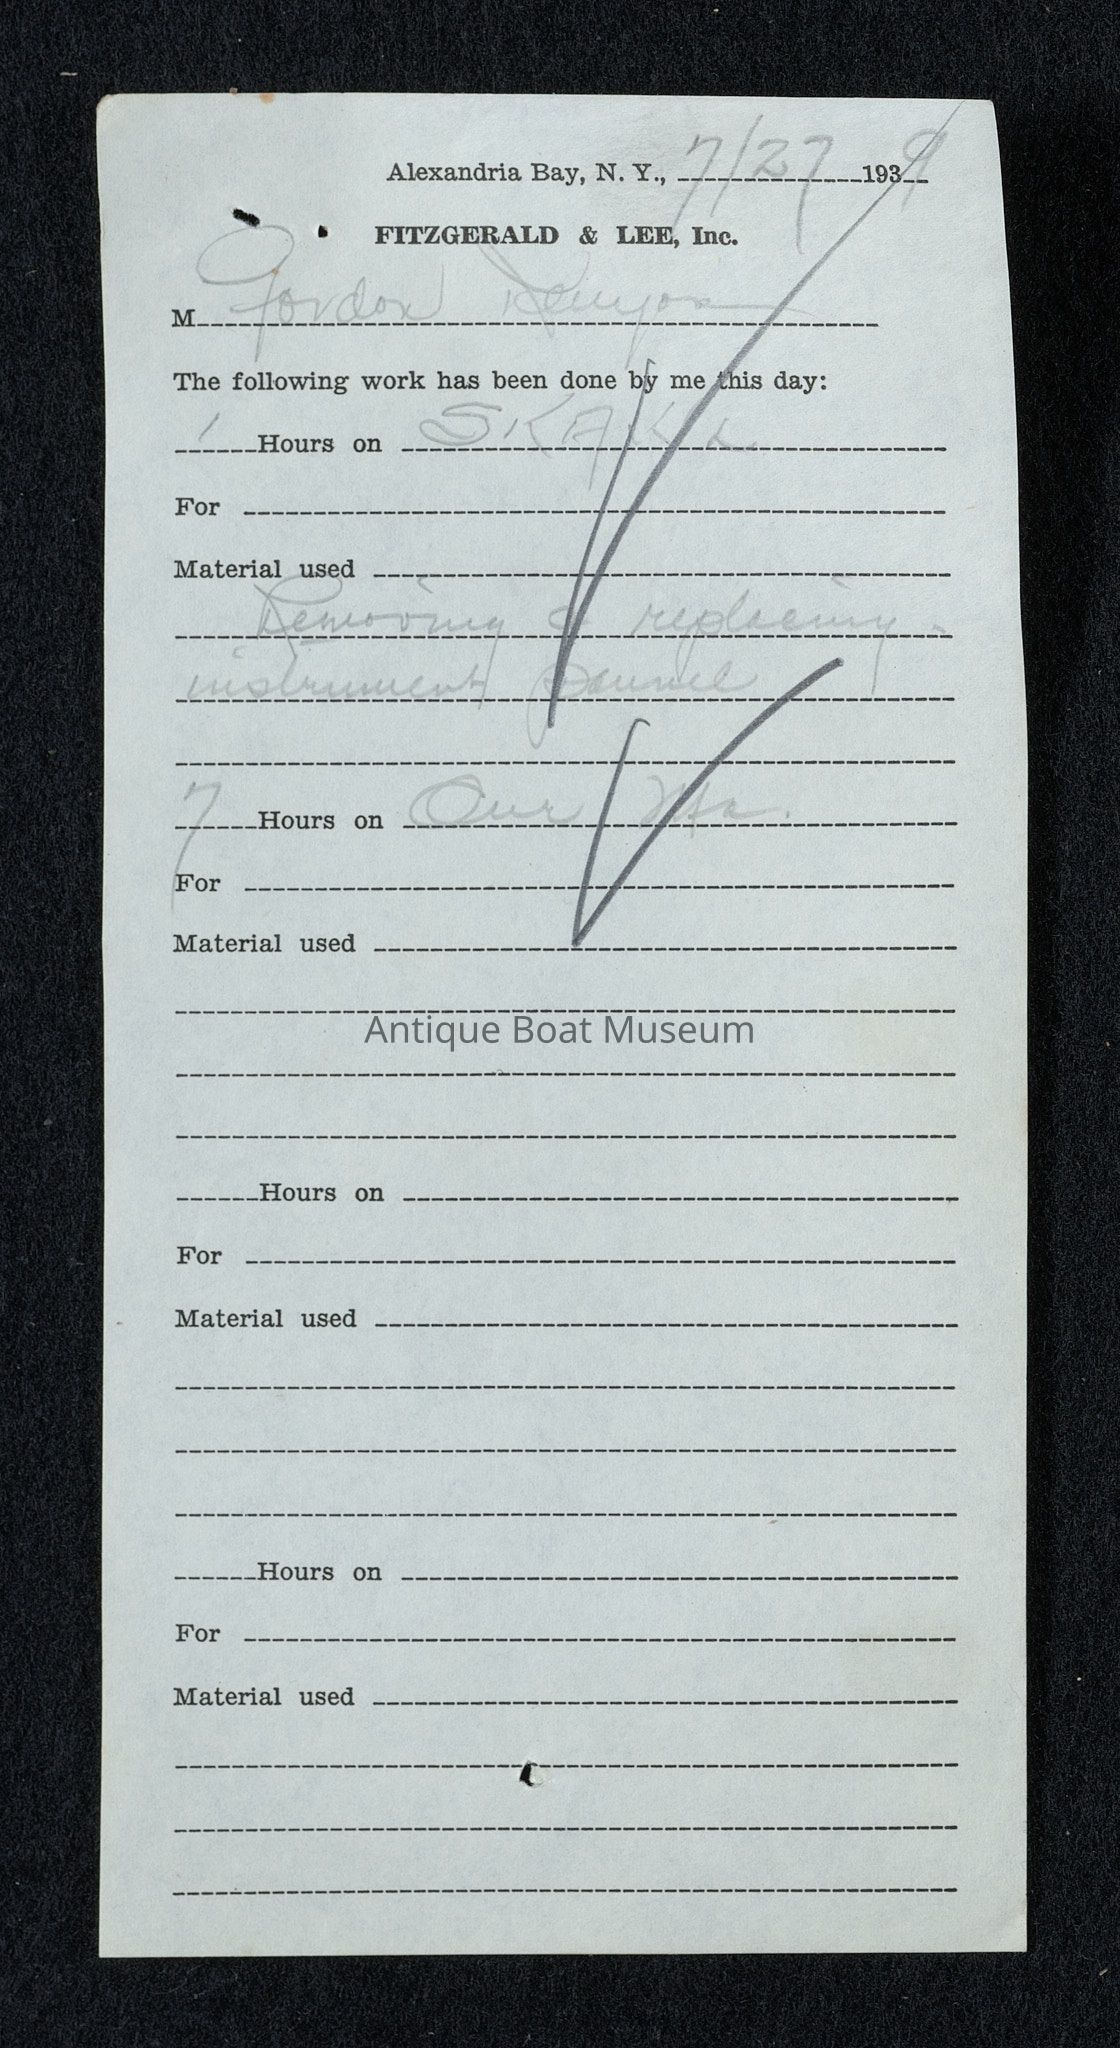 Alexandria Bay, N. Y., 7/27 1939
FITZGERALD & LEE, Inc.
M Gordon Kenyon
The following work has been done by me this day:
1 Hours on
For
Material used
Removing & replacing
instrument pannel
7 Hours on Our
For
Material used
Antique Boat Museum
Hours on
For
Material used
Hours on
For
Material used